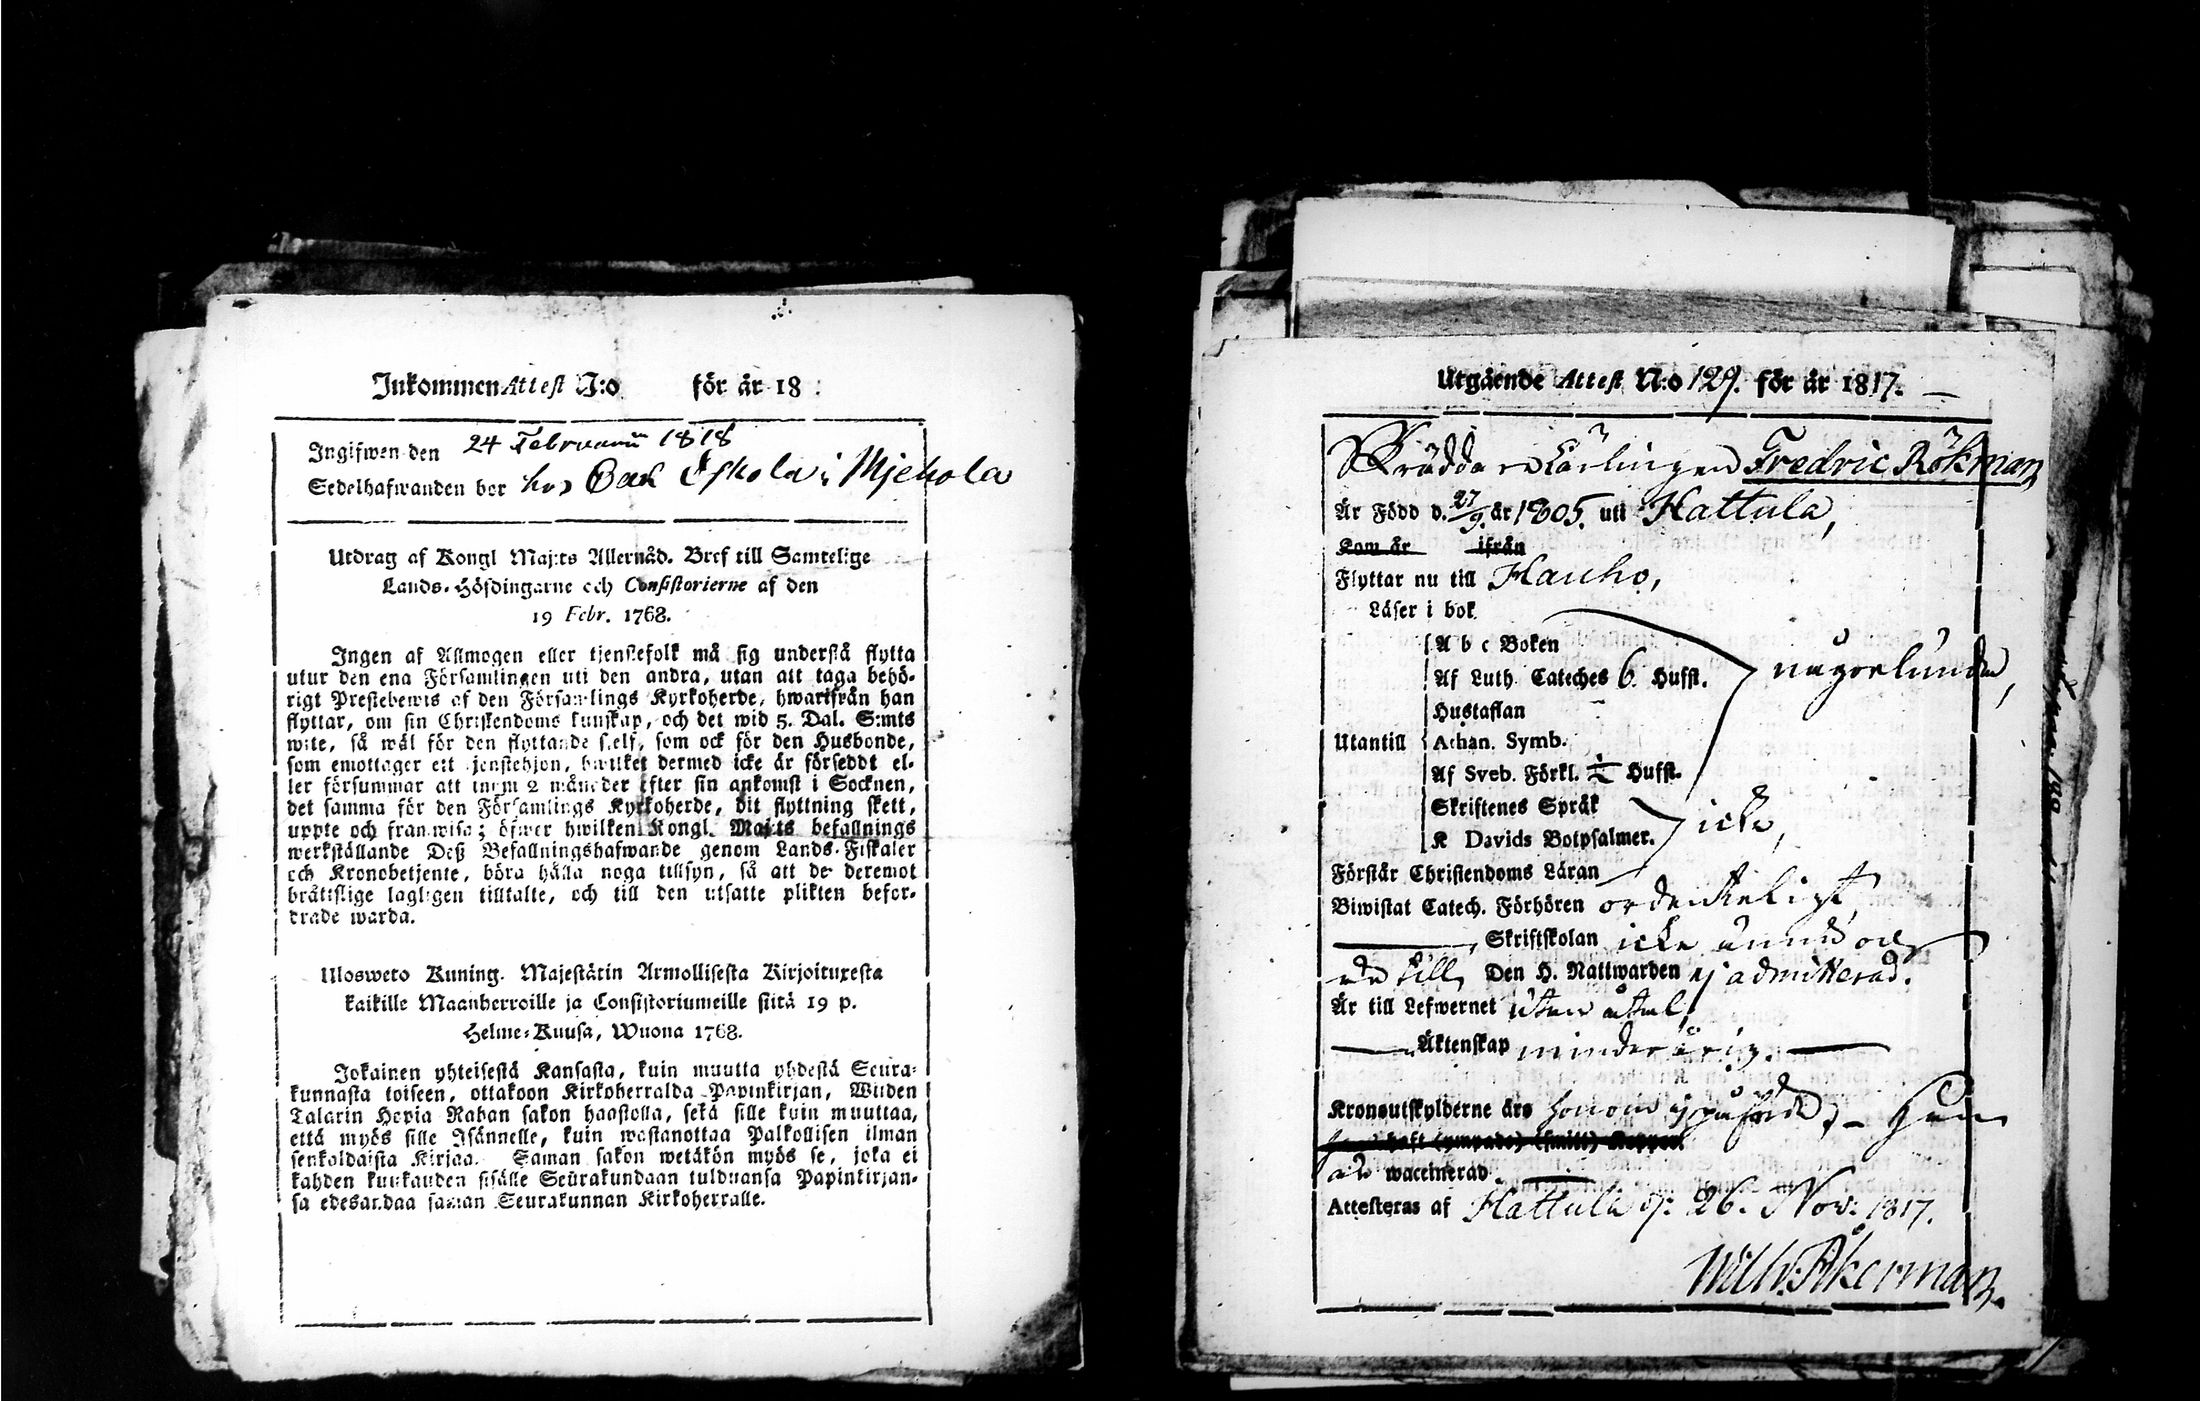 Inkommen Attest N:o för år 18 :
Ingifwen den 24 Februarii 1818
Sedelhafwanden bor hos Eskola i Mjehola
Utdrag af Kongl Maj:ts Allernåd. Bref till Samtelige
Lands-Höfdingarne och Consistorierne af den
19 Febr. 1768.
Ingen af Allmogen eller tjenstefolk må sig understå flytta
utur den ena Församlingen uti den andra, utan att taga behö-
rigt Prestebewis af den Församlings Kyrkoherde, hwarifrån han
flyttar, om sin Christendoms kunskap, och det wid 5. Dal. S:mts
wite, så wäl för den flyttande sielf, som ock för den Husbonde,
som emottager ett tjenstehjon, hwilket dermed icke är försedt el-
ler försummar att inom 2 månader efter sin ankomst i Socknen,
det samma för den Församlings Kyrkoherde, dit flyttning skett,
uppte och framwisa; öfwer hwilken Kongl. Maj:ts befallnings
werkställande Deß Befallningshafwande genom Lands-Fiskaler
och Kronobetjente, böra hålla noga tillsyn, så att de deremot
bråttslige lagligen tilltalte, och till den utsatte plikten befor-
drade warda.
Ulosweto Kuning. Majestätin Armollisesta Kirjoituxesta
kaikille Maanherroille ja Consistoriumeille siitä 19 p.
Helme-Kuusa, Wuona 1768.
Jokainen yhteisestä Kansasta, kuin muutta yhdestä Seura-
kunnasta toiseen, ottakoon Kirkoherralda Papinkirjan, Wiiden
Talarin Hopia Rahan sakon haastolla, sekä sille kuin muuttaa,
että myös sille Isännelle, kuin wastanottaa Palkollisen ilman
senkaldaista Kirjaa. Saman sakon wetäkön myös se, joka ei
kahden kuukauden sisälle Seurakundaan tulduansa Papinkirjan-
sa edesandaa saman Seurakunnan Kirkoherralle.
Utgående Attest N:o 129. för år 1817.
Skräddare Lärlingen Fredric Rökman
Är Född d. 27/9. år 1805. uti Hattula,
Kom år ifrån
Flyttar nu till Hauho,
Läser i bok
A b c Boken
Af Luth. Cateches 6. Hufst. någorlunda,
Hustaflan
Utantill Athan. Symb.
Af Sveb. Förkl. Hufst.
Skriftenes Språk icke,
K Davids Botpsalmer.
Förstår Christendoms Läran
Biwistat Catech. Förhören ordenteligt,
Skriftskolan icke ännu och
Den H. Nattwarden ej admitterad.
Är till Lefwernet utan åtal,
Äktenskap minderårig.
Kronoutskylderne äro honom ej påförde, - Han
haft (ympade) (smitt) Koppor.
är waccinerad.
Attesteras af Hattula d: 26. Nov: 1817.
Wilh. Åkerman.